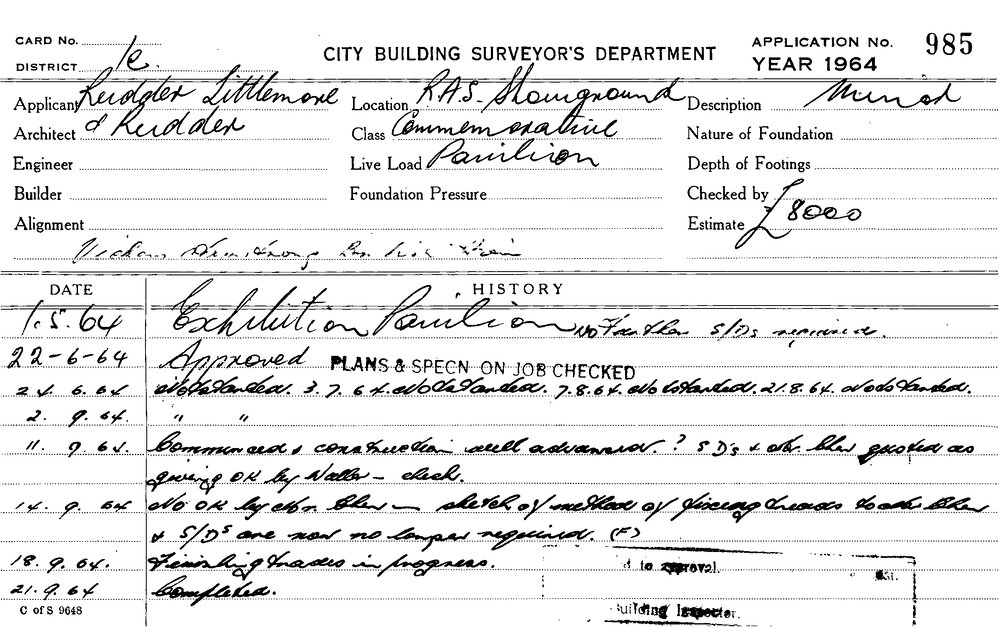 CARD No.
DISTRICT
CITY BUILDING SURVEYOR'S DEPARTMENT
APPLICATION No. 985
YEAR 1964
Applicant Rudder Littlemore
Architect & Rudder
Engineer
Builder
Alignment
Location R.A.S. Showground
Class Commemorative
Live Load Pavilion
Foundation Pressure
Description Minor
Nature of Foundation
Depth of Footings
Checked by
Estimate £8000
DATE HISTORY
1.5.64 Exhibition Pavilion No further S/Ds required.
22-6-64 Approved PLANS & SPECN ON JOB CHECKED
24 6.64 Not started. 3.7.64. Not started. 7.8.64. Not started. 21.8.64. Not started.
2. 9.64. " "
11. 9.64. Commenced & construction well advanced. ? S D's & quoted as
giving OK by Waller - check.
14. 9. 64 No OK by Mr. - sketch of method of fixing treads to
& S/Ds are now no longer required. (F)
18. 9. 64. Finishing trades in progress.
21. 9. 64 Completed.
C of S 9648
d to approval.
Building Inspector.